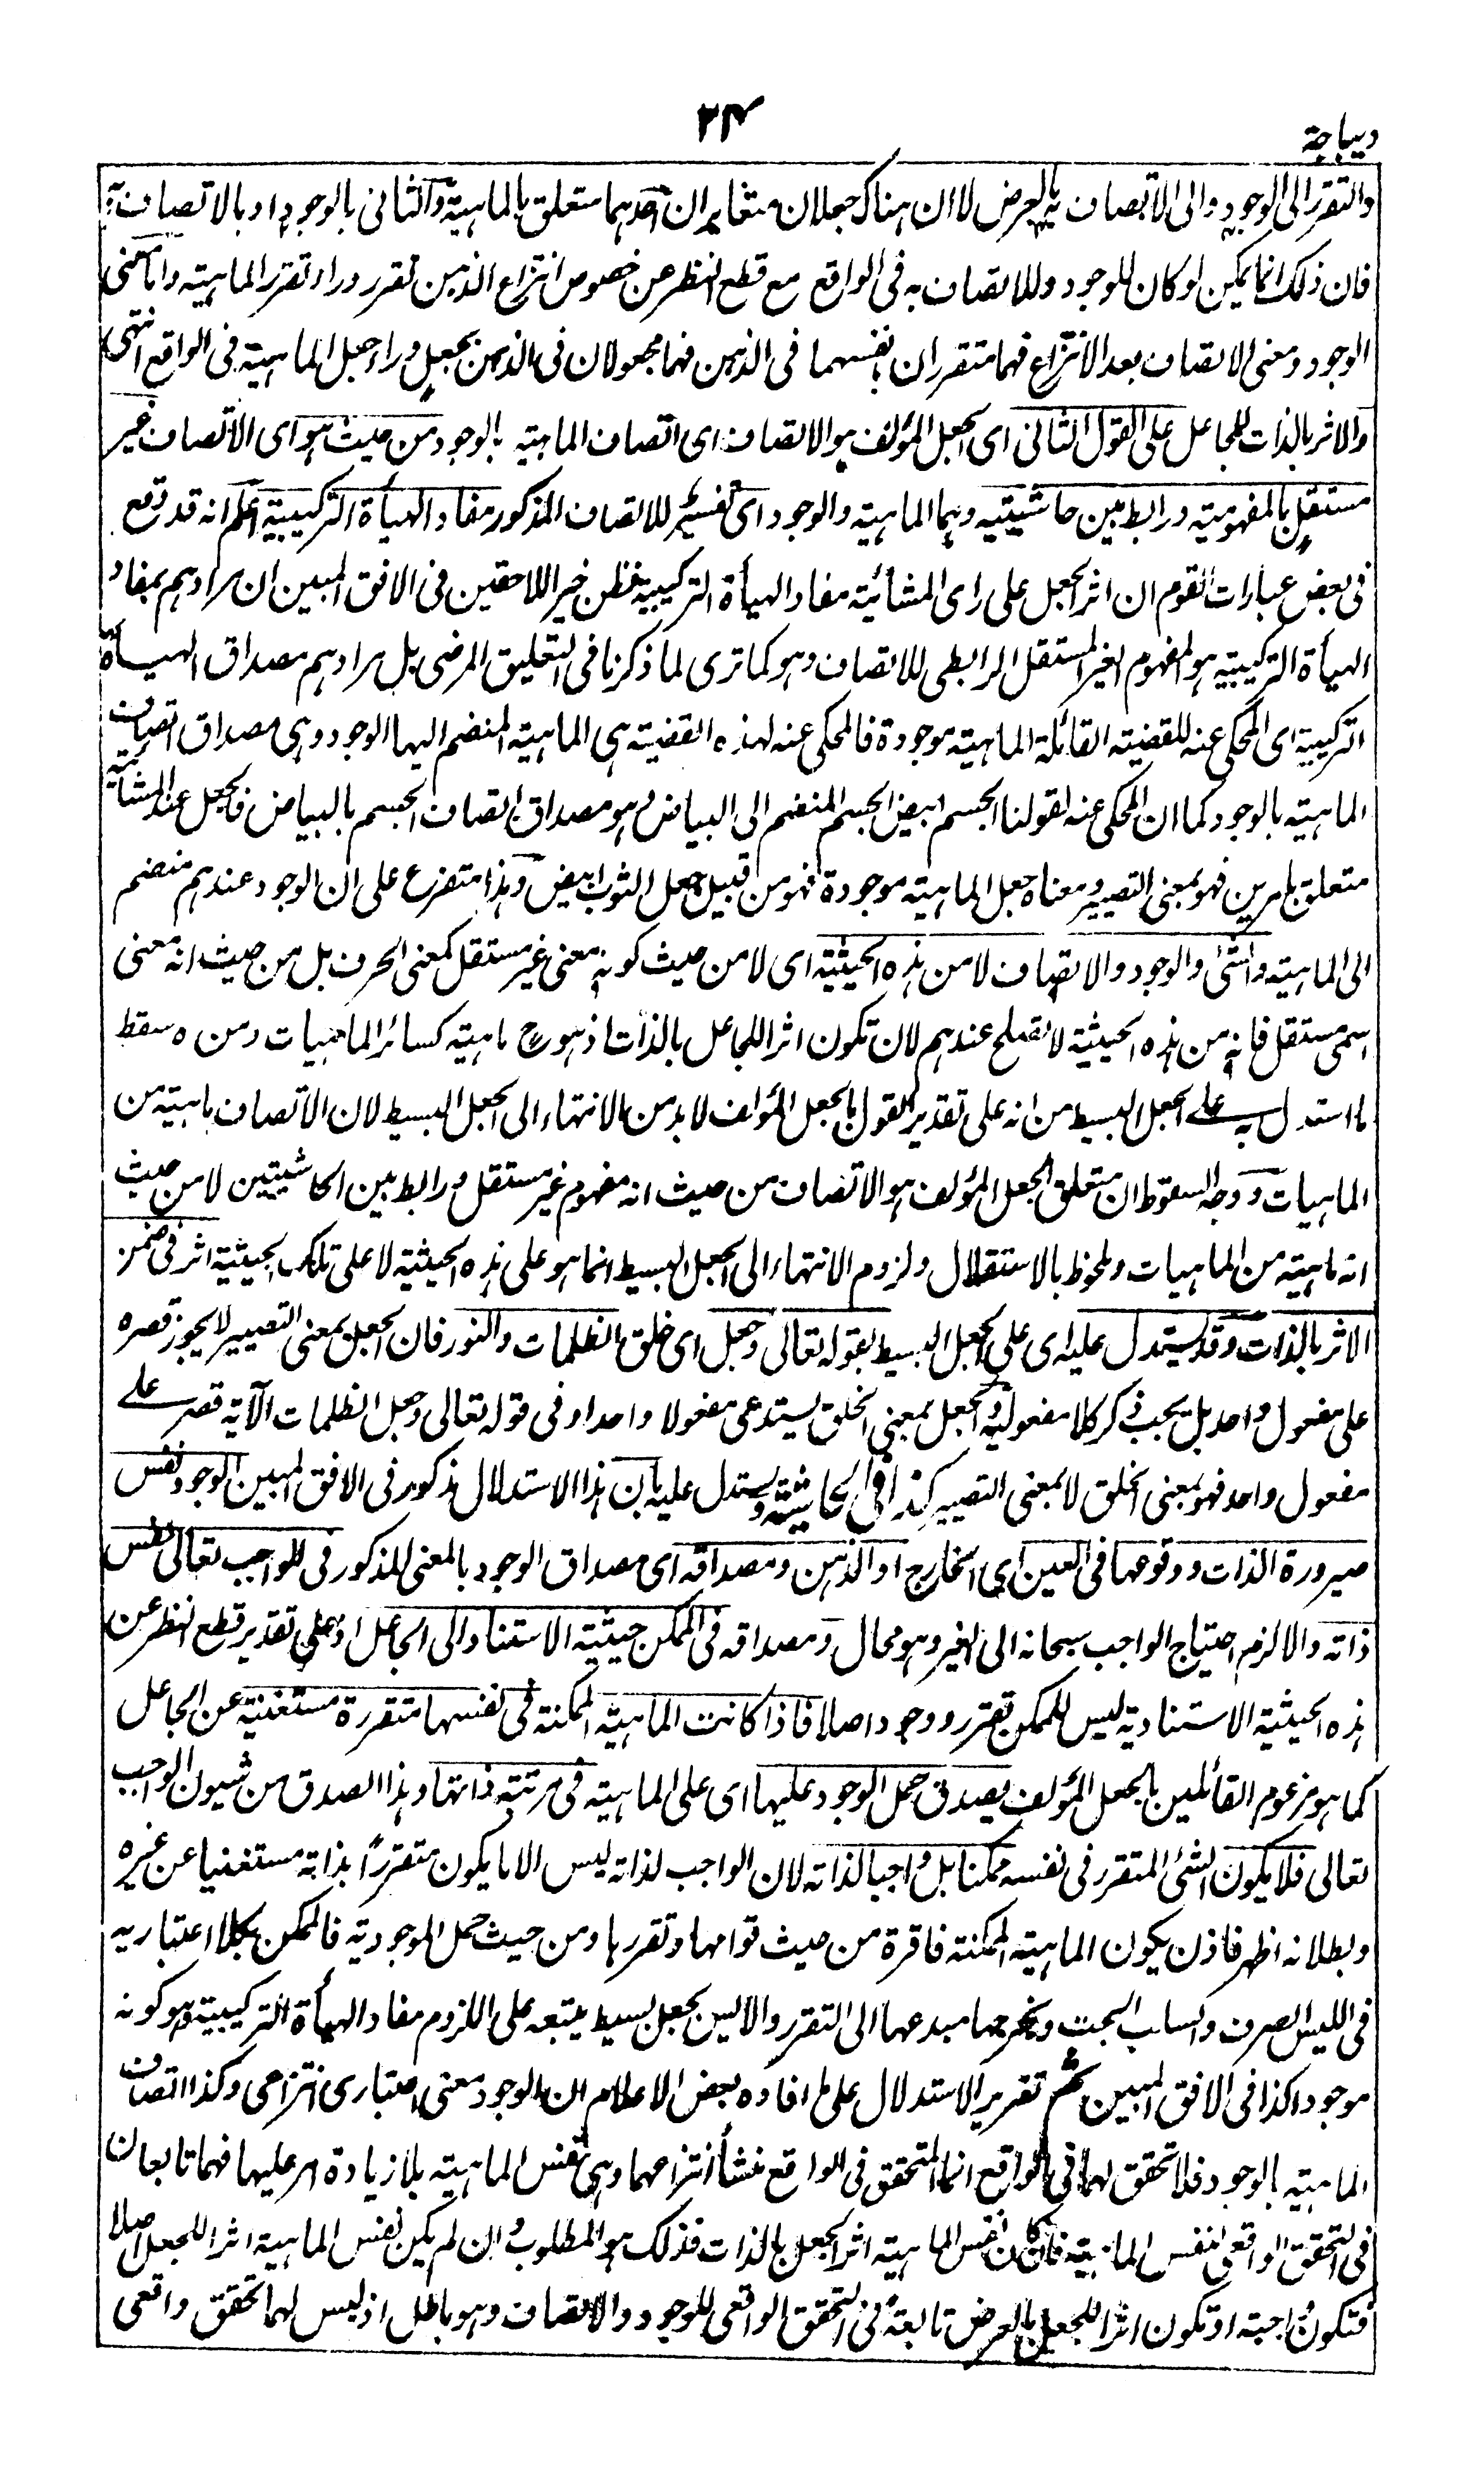 ۲۴
ديباجة
والتقرر الى الوجود والى الاتصاف به بالعرض لا ان هناك جعلان متغايران احدهما متعلق بالماهية والثانى بالوجود او بالاتصاف به
فان ذلك انما يمكن لو كان للوجود وللاتصاف به فى الواقع مع قطع النظر عن خصوص انتزاع الذهن تقرر وراء تقرر الماهية واما معنى
الوجود ومعنى الاتصاف بعد الانتزاع فهما متقرران بانفسهما فى الذهن فهما مجعولان فى الذهن بجعل وراء جعل الماهية فى الواقع انتهى
والاثر بالذات للجاعل على القول الثانى اى الجعل المؤلف هو الاتصاف اى اتصاف الماهية بالوجود من حيث هو اى الاتصاف غير
مستقل بالمفهومية ورابط بين حاشيتيه وهما الماهية والوجود اى تفسير للاتصاف المذكور مفاد الهيأة التركيبية اعلم انه قد وقع
فى بعض عبارات القوم ان اثر الجعل على راى المشائية مفاد الهيأة التركيبية فظن خير اللاحقين فى الافق المبين ان مرادهم بمفاد
الهيأة التركيبية هو المفهوم الغير المستقل الرابطى للاتصاف وهو كما ترى لما ذكرنا فى التعليق المرضى بل مرادهم مصداق الهيأة
التركيبية اى المحكى عنه للقضية القائلة الماهية موجودة فالمحكى عنه لهذه القضية هى الماهية المنضم اليها الوجود وهى مصداق اتصاف
الماهية بالوجود كما ان المحكى عنه لقولنا الجسم ابيض الجسم المنضم الى البياض وهو مصداق اتصاف الجسم بالبياض فالجعل عند المشائية
متعلق بامرين فهو بمعنى التصيير ومعناه جعل الماهية موجودة فهو من قبيل جعل الثوب ابيض وهذا متفرع على ان الوجود عندهم منضم
الى الماهية وانثى والوجود والاتصاف لا من هذه الحيثية اى لا من حيث كونه معنى غير مستقل كمعنى الحرف بل من حيث انه معنى
اسمى مستقل فانه من هذه الحيثية لا تصلح عندهم لان تكون اثرا للجاعل بالذات اذ هو ح ماهية كسائر الماهيات ومن ه سقط
ما استدل به على الجعل البسيط من انه على تقدير القول بالجعل المؤلف لا بد من الانتهاء الى الجعل البسيط لان الاتصاف ماهية من
الماهيات ووجه السقوط ان متعلق الجعل المؤلف هو الاتصاف من حيث انه مفهوم غير مستقل ورابط بين الحاشيتين لا من حيث
انه ماهية من الماهيات وملحوظ بالاستقلال ولزوم الانتهاء الى الجعل البسيط انما هو على هذه الحيثية لا على تلك الحيثية اثر فى ضمن
الاثر بالذات وقد يستدل عليه اى على الجعل البسيط بقوله تعالى وجعل اى خلق الظلمات والنور فان الجعل بمعنى التصيير لا يجوز قصره
على مفعول واحد بل يجب ذكر كلا مفعوليه والجعل بمعنى الخلق يستدعى مفعولا واحدا وفى قوله تعالى وجعل الظلمات الآية قصر على
مفعول واحد فهو بمعنى الخلق لا بمعنى التصيير كذا فى الحاشية ويستدل عليه بان هذا الاستدلال مذكور فى الافق المبين الوجود نفس
صيرورة الذات ووقوعها فى العين اى الخارج او الذهن ومصداقه اى مصداق الوجود بالمعنى المذكور فى الواجب تعالى نفس
ذاته والا لزم احتياج الواجب سبحانه الى الغير وهو محال ومصداقه فى الممكن حيثية الاستناد الى الجاعل اذ على تقدير قطع النظر عن
هذه الحيثية الاستنادية ليس للممكن تقرر ووجود اصلا فاذا كانت الماهية الممكنة فى نفسها متقررة مستغنية عن الجاعل
كما هو مزعوم القائلين بالجعل المؤلف يصدق حمل الوجود عليها اى على الماهية فى مرتبة ذاتها وهذا الصدق من شيون الواجب
تعالى فلا يكون الشئ المتقرر فى نفسه ممكنا بل واجبا لذاته لان الواجب لذاته ليس الا ما يكون متقررًا بذاته مستغنيا عن غيره
وبطلانه اظهر فاذن يكون الماهية الممكنة فاقرة من حيث قوامها وتقررها ومن حيث حمل الموجودية فالممكن بكلا اعتباريه
فى الليس الصرف والسلب البحت ويخرجها مبدعها الى التقرر والايس بجعل بسيط يتبعه على اللزوم مفاد الهيأة التركيبية وهو كونه
موجودا كذا فى الافق المبين ثم تقرير الاستدلال على ما افاده بعض الاعلام ان الوجود معنى اعتبارى انتزاعى وكذا اتصاف
الماهية بالوجود فلا تحقق لهما فى الواقع انما المتحقق فى الواقع منشأ انتزاعهما وهى نفس الماهية بلا زيادة امر عليها فهما تابعان
فى التحقق الواقعى لنفس الماهية فان كان نفس الماهية اثر الجعل بالذات فذلك هو المطلوب وان لم يكن نفس الماهية اثرا للجعل اصلا
فتكون واجبة او تكون اثرا للجعل بالعرض تابعة فى التحقق الواقعى للوجود والاتصاف وهو باطل اذ ليس لهما تحقق واقعى